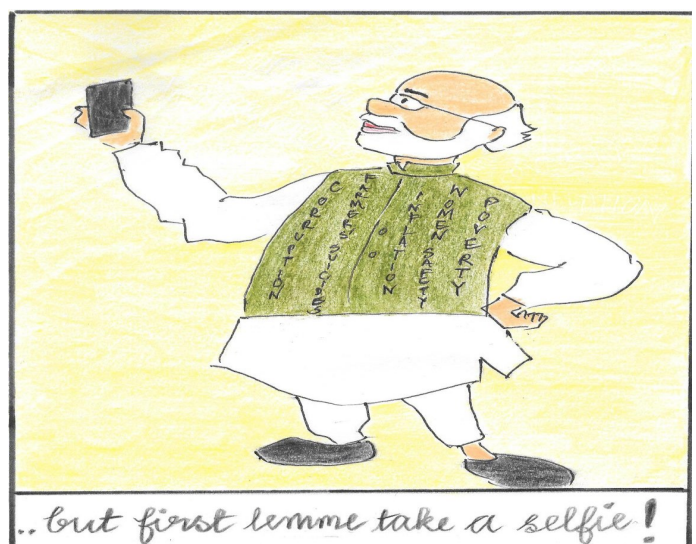 CORRUPTION
FARMERS SUICIDES
INFLATION
WOMEN SAFETY
POVERTY
.. but first lemme take a selfie!